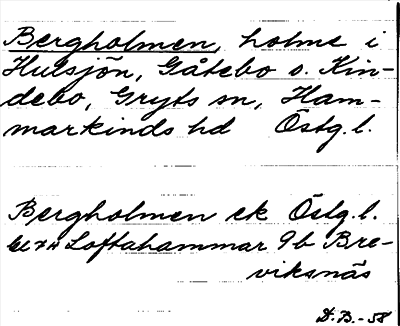 Bergholmen, holme i
Hulsjön, Gåtebo o. Kin-
debo, Gryts sn, Ham-
markinds hd Östg.l.
Bergholmen ek Östg.l.
Loftahammar 9b Bre-
viksnäs
D.B.-58